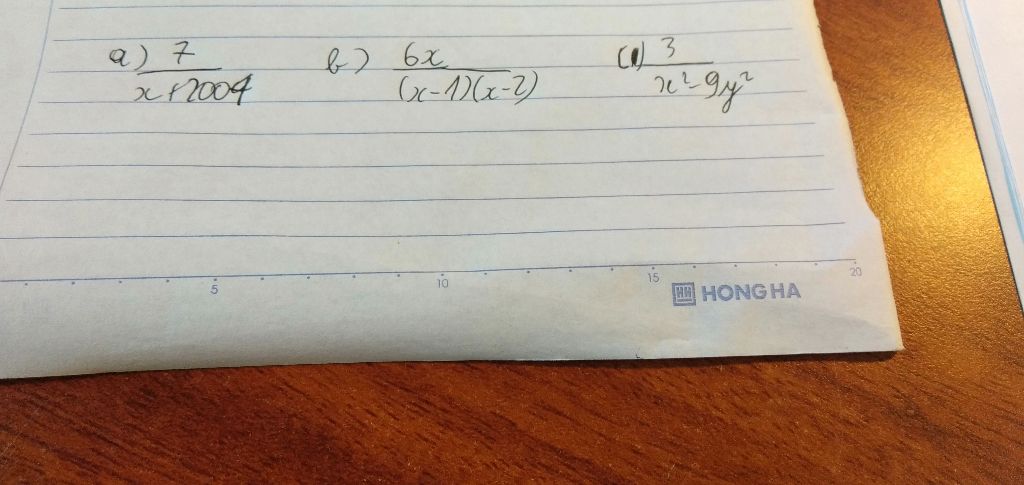 a) 7/(x+2004) b) 6x/((x-1)(x-2)) c) 3/(x²-9y²)
5 10 15 20
HONG HA